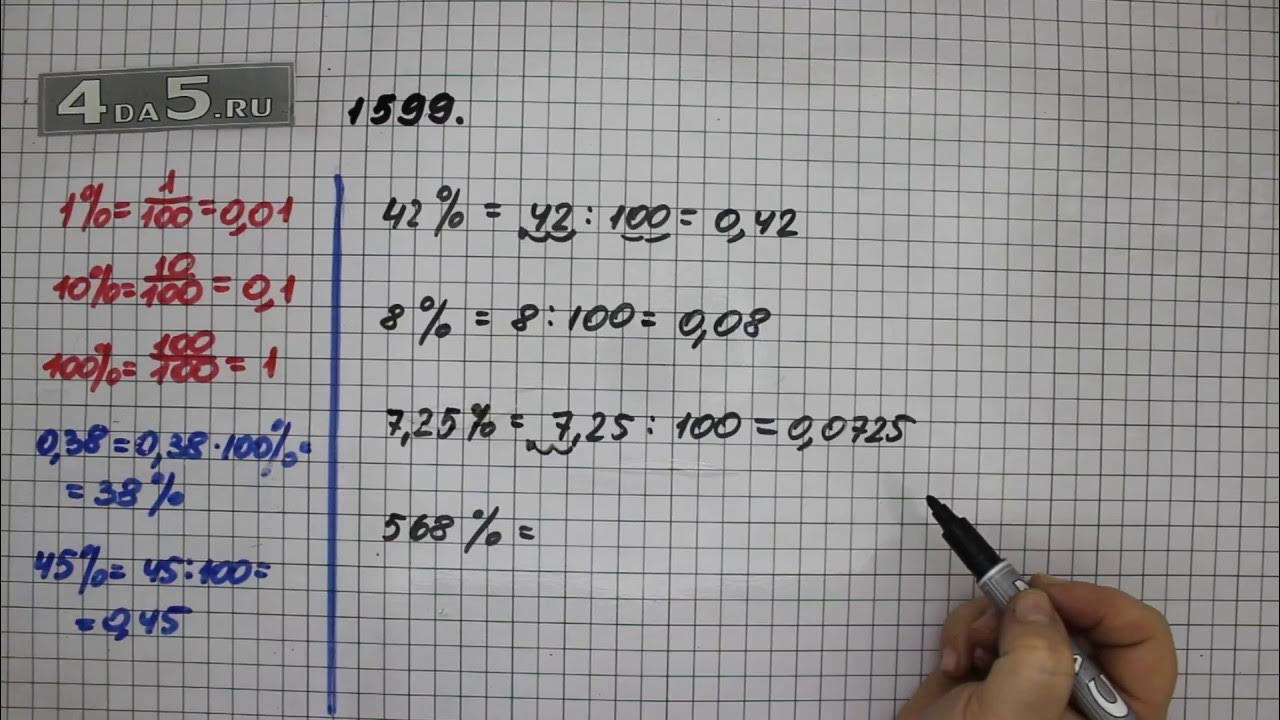 4DA5.RU
1599.
1% = 1/100 = 0,01
10% = 10/100 = 0,1
100% = 100/100 = 1
0,38 = 0,38 · 100% =
= 38%
45% = 45 : 100 =
= 0,45
42% = 42 : 100 = 0,42
8% = 8 : 100 = 0,08
7,25% = 7,25 : 100 = 0,0725
568% =